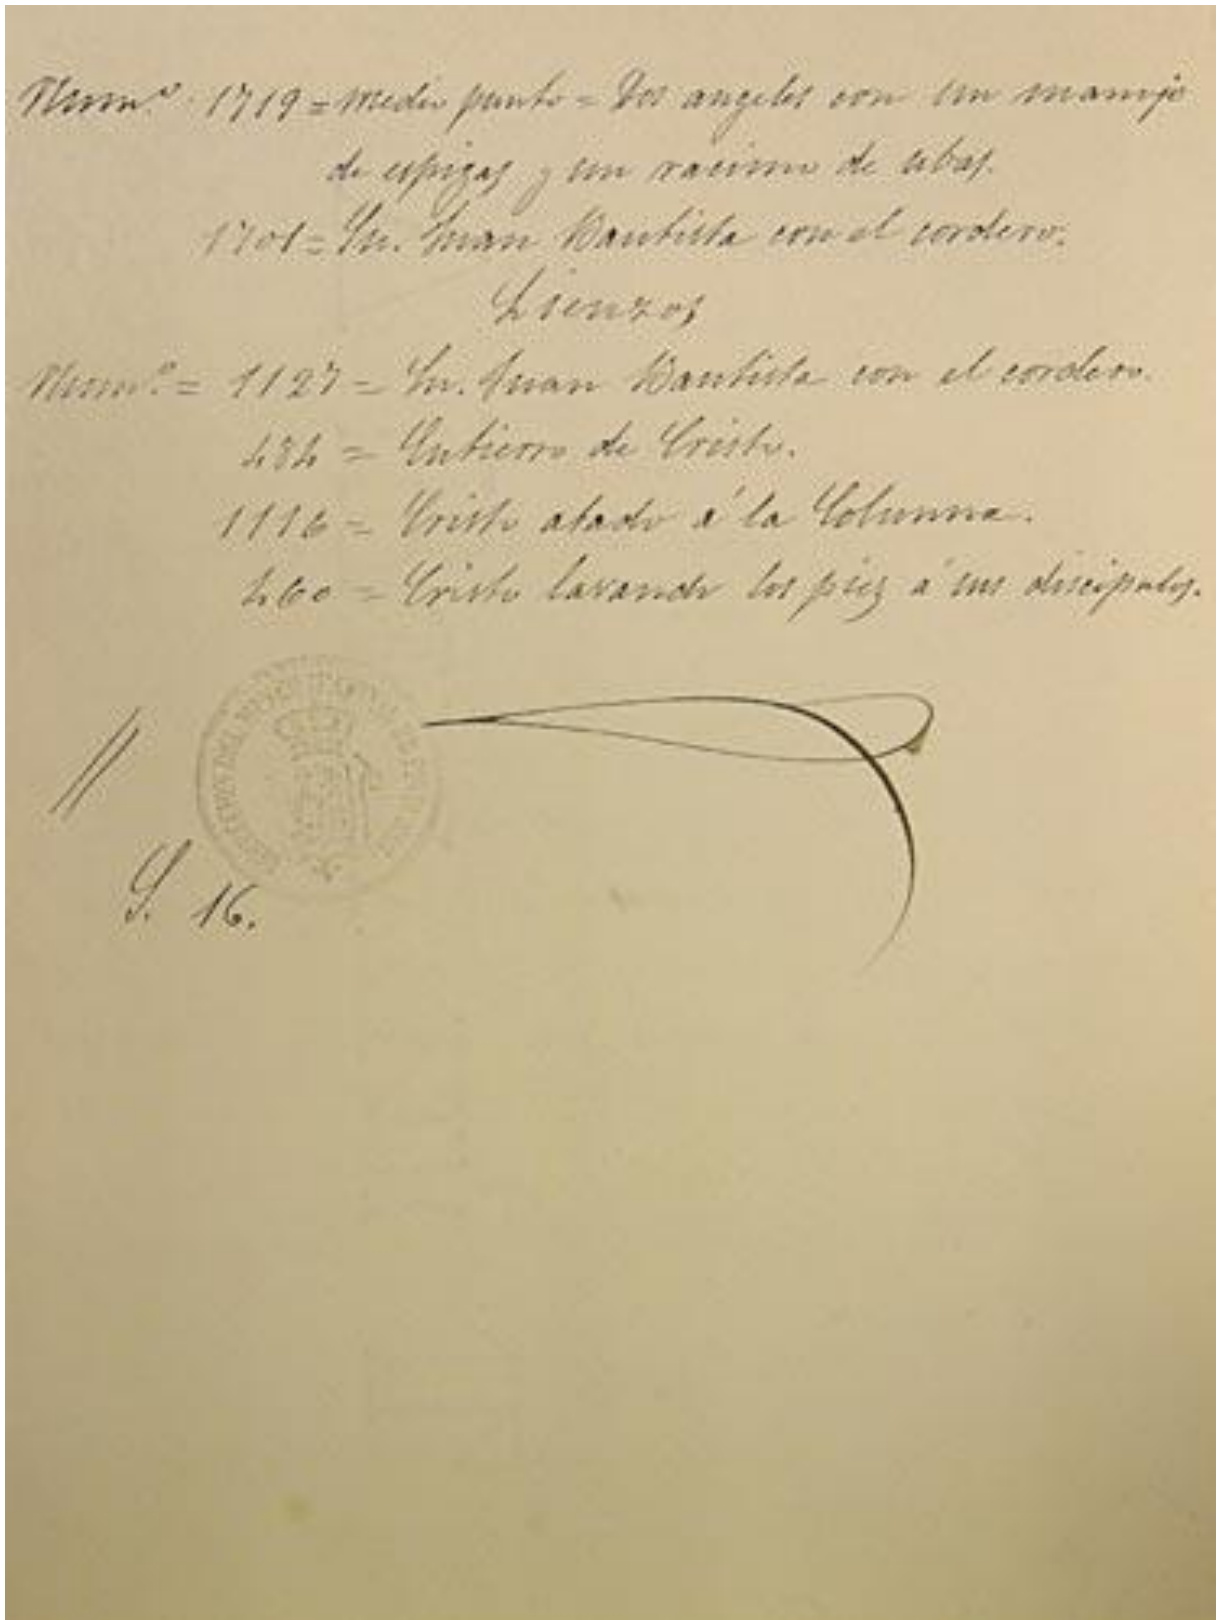 Num.º 1719 = medio punto = Dos angeles con un manojo
de espigas y un racimo de ubas.
1701 = Sn. Juan Bautista con el cordero.
Lienzos
Num.º = 1127 = Sn. Juan Bautista con el cordero.
484 = Entierro de Cristo.
1116 = Cristo atado á la Columna.
460 = Cristo lavando los piez á sus discipulos.
S. 16.